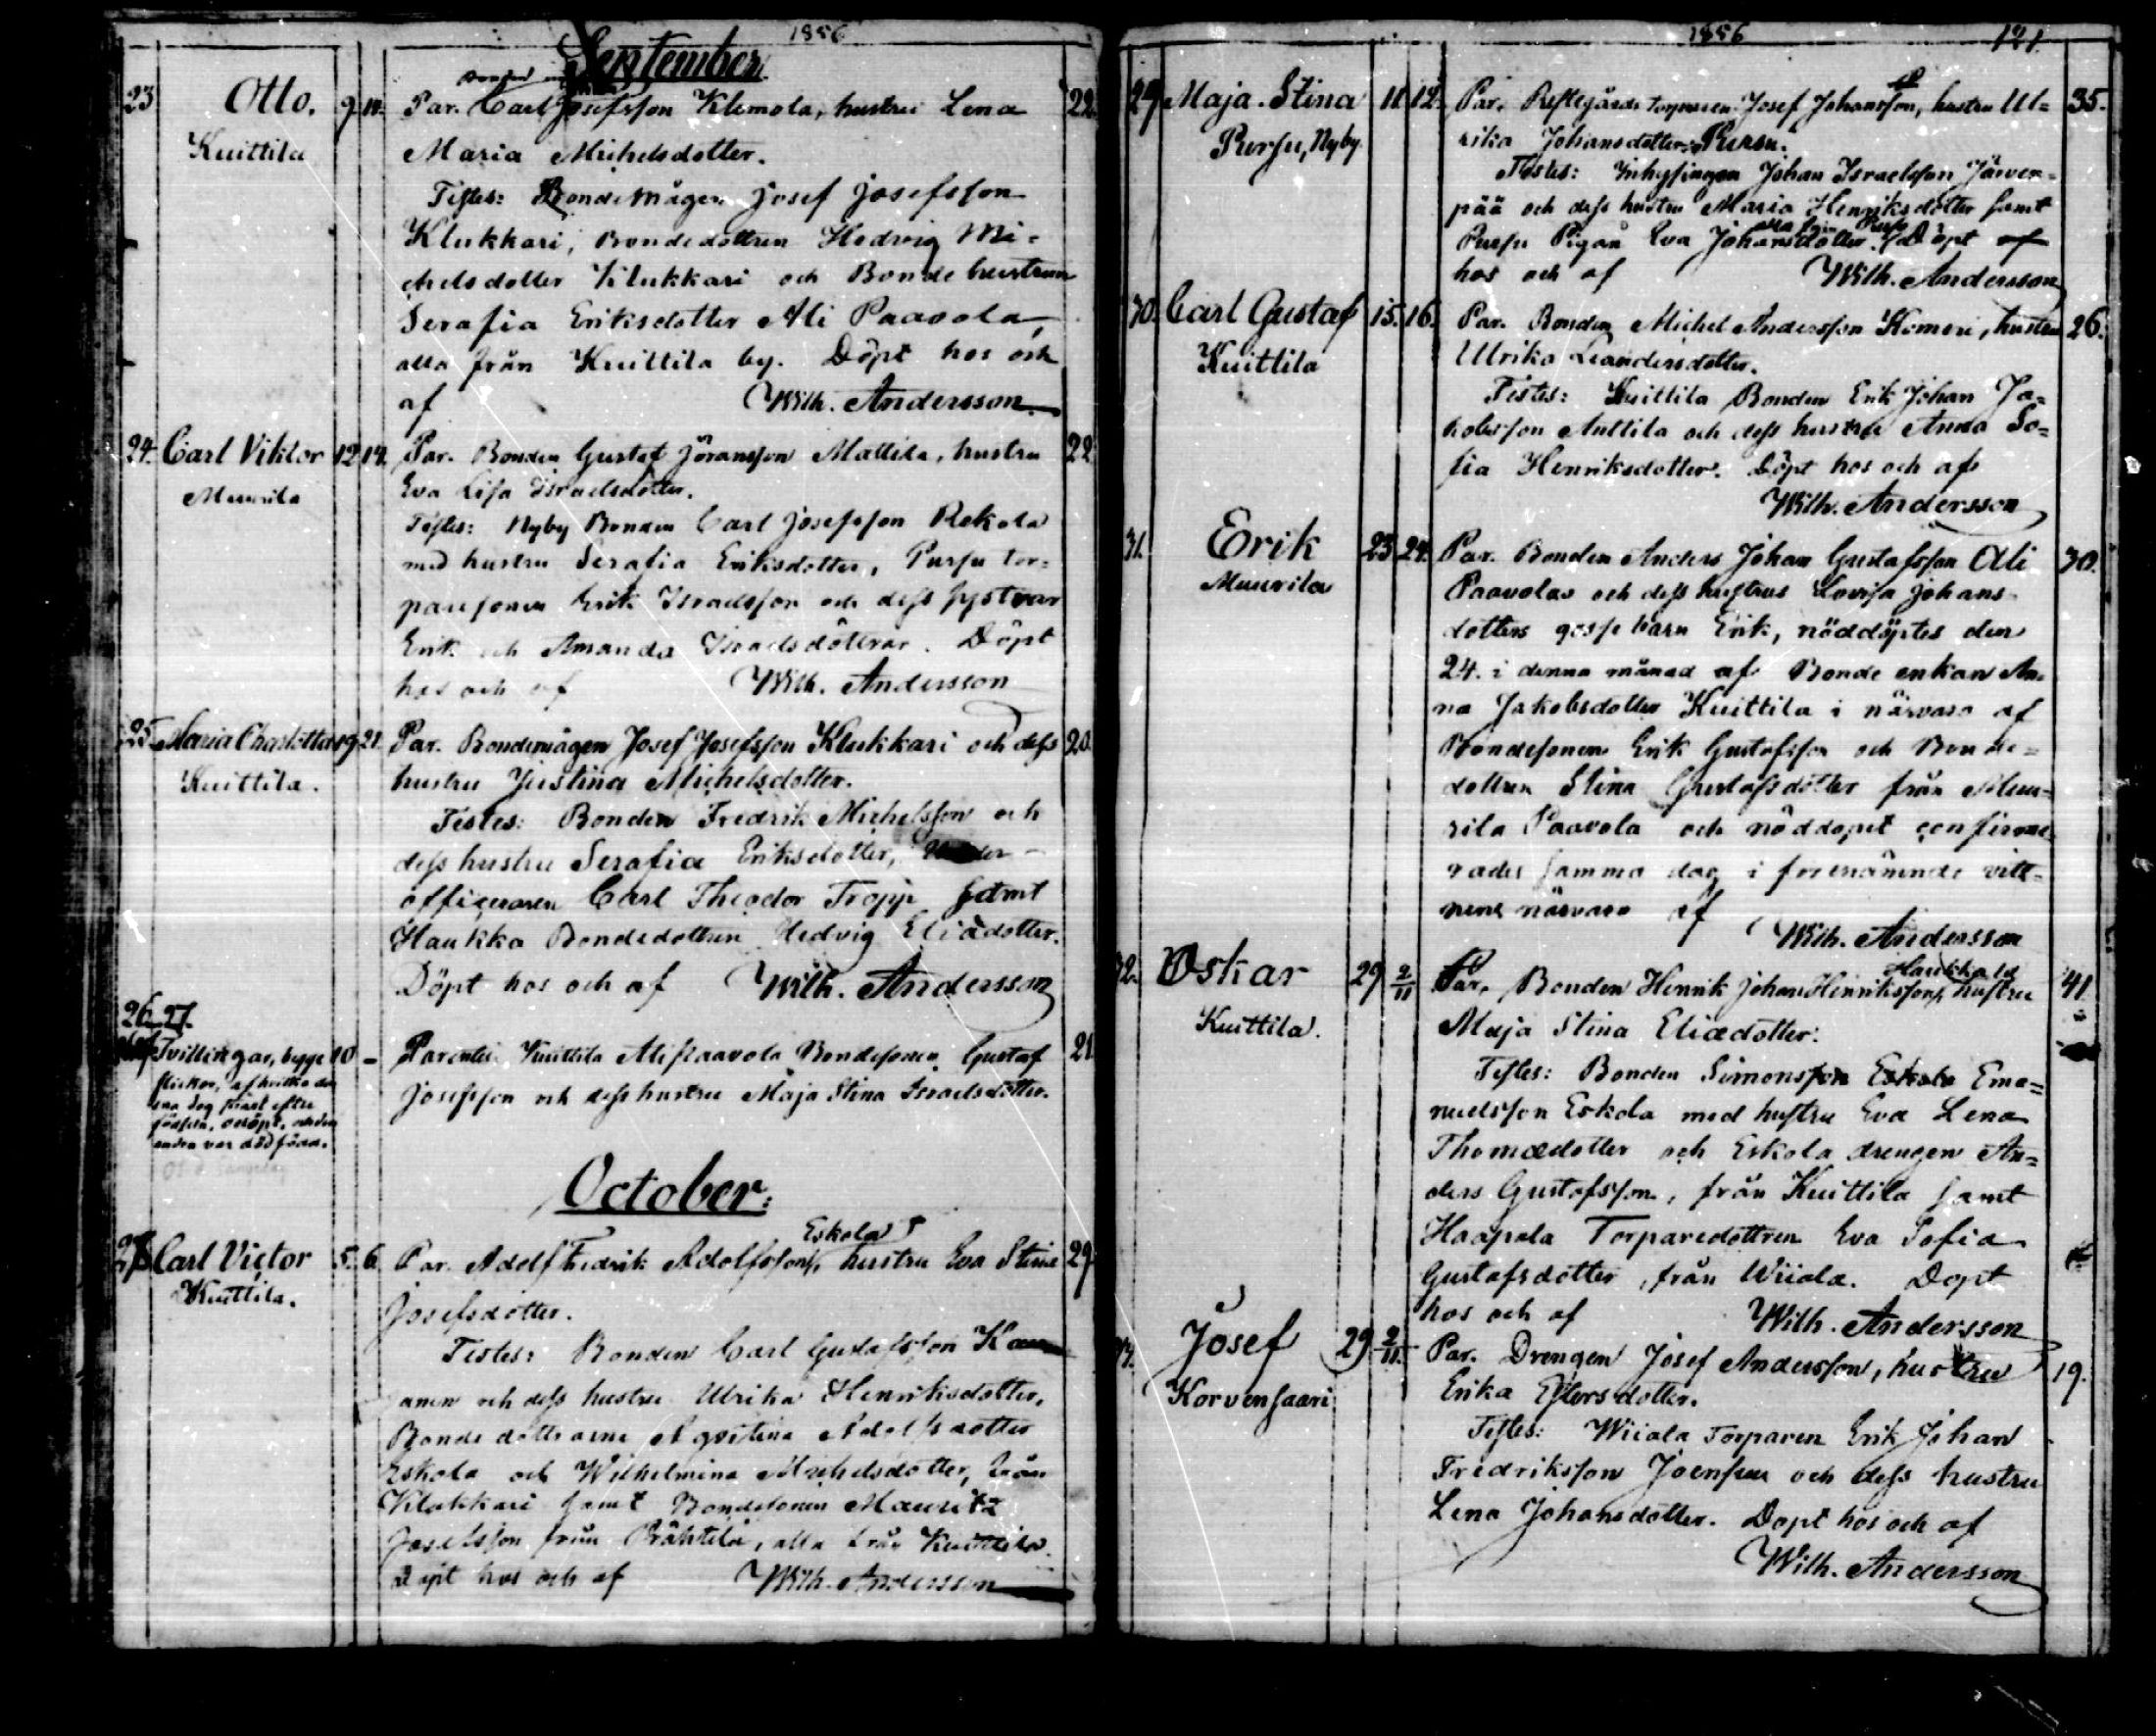 1856
September
23 Otto. 9 14. Par. Carl Josefsson Klemola, hustru Lena 22.
Kuittila Maria Michelsdotter.
Testes: Bondemågen Josef Josefsson
Klukkari, Bondedottren Hedvig Mi=
chelsdotter Klukkari och Bonde hustrun
Serafia Eriksdotter Ali Paavola,
alla från Kuittila by. Döpt hos och
af Wilh. Andersson
24. Carl Viktor 12 14. Par. Bonden Gustaf Göransson Mattila, hustru 22
Muurila Eva Lisa Israelsdotter.
Testes: Nyby Bonden Carl Josefsson Rekola
med hustru Serafia Eriksdotter, Pursu tor=
paresonen Erik Israelsson och dess systrar
Erik och Amanda Israelsdöttrar. Döpt
hos och af Wilh. Andersson
25. Maria Charlotta 19 21. Par. Bondemågen Josef Josefsson Klukkari och dess 20.
Kuittila. hustru Justina Michelsdotter.
Testes: Bonden Fredrik Michelsson och
dess hustru Serafia Eriksdotter, Under-
officeraren Carl Theodor Tropp samt
Haukka Bondedottren Hedvig Eliædotter.
Döpt hos och af Wilh. Andersson
26. 27.
Tvillingar, begge 10 - Parentes Kuittila Alipaavola Bondesonen Gustaf 21
flickor, af hvilka den Josefsson och dess hustru Maja Stina Israelsdotter.
ena dog straxt efter
födseln, odöpt, och den
andra var dödfödd.
October:
Eskola
28 Carl Victor 5. 6. Par. Adolf Fredrik Adolfsson, hustru Eva Stina 29.
Kuittila. Josefsdotter.
Testes: Bonden Carl Gustafsson
och dess hustru Ulrika Henriksdotter,
Bonde döttrarne Agustina Adolfsdotter
Eskola och Wilhelmina Michelsdotter, från
Klukkari samt Bondesonen Mauritz
Josefsson från Prähtilä, alla från Kuittila.
Döpt hos och af Wilh. Andersson
1856 121
29 Maja Stina 11. 12. Par. Prestegårds torparen Josef Johansson, hustru Ul= 35.
Pursu, Nyby rika Johansdotter Pursu.
Testes: Inhysingen Johan Israelsson Järven=
pää och dess hustru Maria Henriksdotter samt
Pursu Pigan Eva Johansdotter. Döpt
hos och af Wilh. Andersson
30. Carl Gustaf 15. 16. Par. Bonden Michel Andersson Komeri, hustru 26.
Kuittila Ulrika Leandersdotter.
Testes: Kuittila Bonden Erik Johan Ja=
kobsson Anttila och dess hustru Anna So=
fia Henriksdotter. Döpt hos och af
Wilh. Andersson
31. Erik 23 24. Par. Bonden Anders Johan Gustafsson Ali 30.
Muurila Paavolas och dess hustrus Lovisa Johans
dotters gosse barn Erik, nöddöptes den
24. i denna månad af Bonde enkan An=
na Jakobsdotter Kuittila i närvaro af
Bondesonen Erik Gustafsson och Bonde=
dottren Stina Gustafsdotter från Muu=
rila Paavola och nöddopet confirme=
rades samma dag i förenämnde vitt=
nens närvaro af
Wilh. Andersson
Haukkala
32. Oskar 29 2/11 Par. Bonden Henrik Johan Henriksson, hustru 41
Kuittila. Maja Stina Eliædotter.
Testes: Bonden Simonsson Eskola Ema=
nuelsson Eskola med hustru Eva Lena
Thomædotter och Eskola drengen An=
ders Gustafsson, från Kuittila samt
Haapala Torparedottren Eva Sofia
Gustafsdotter, från Wiiala. Döpt
hos och af Wilh. Andersson
33. Josef 29 2/11. Par. Drengen Josef Andersson, hustru 19.
Korvensaari Erika Eflorsdotter.
Testes: Wiiala Torparen Erik Johan
Fredriksson Joensuu och dess hustru
Lena Johansdotter. Döpt hos och af
Wilh. Andersson